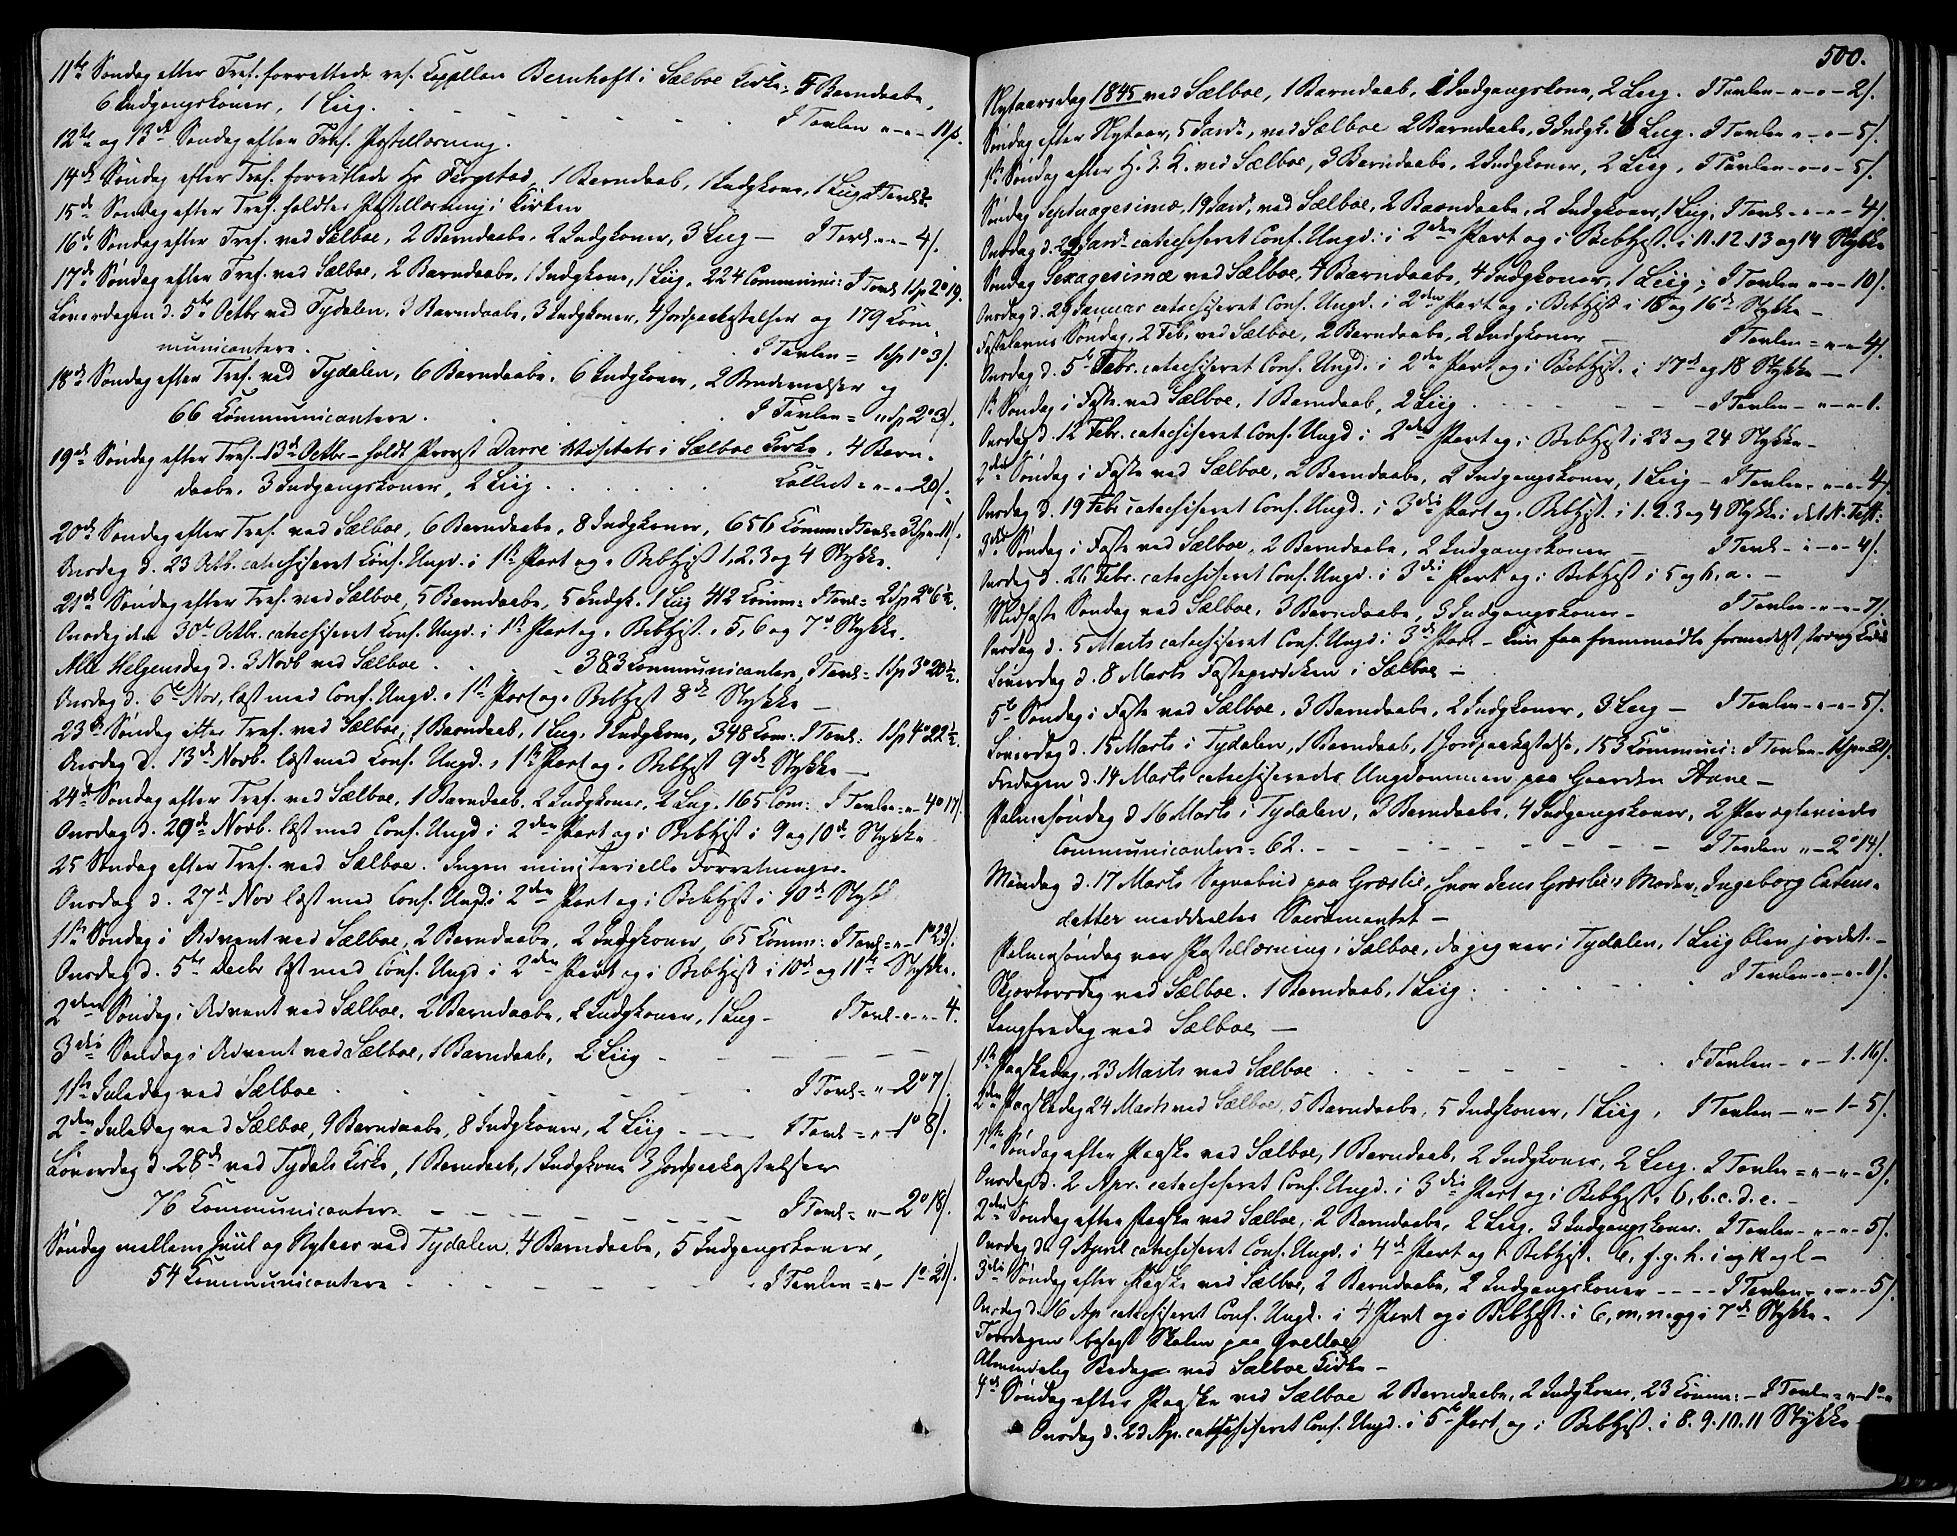 11te Søndag efter Tref. forrettede res. Capellan Bernhoft i Sælboe Kirke. 5 Barndaabe,
6 Indgangskoner, 1 Liig. I Tavlen " - " - 11 s.
12te og 13de Søndag efter Tref. Postillæsning.
14de Søndag efter Tref. forrettede Hr 1 Barndaab, 1 Indgkone, 1 Liig. I Tavlen
15de Søndag efter Tref. holdtes Postillæsning i Kirken
16de Søndag efter Tref. ved Sælboe, 2 Barndaabe, 2 Indgkoner, 3 Liig - I Tavl. " - " - 4/.
17de Søndag efter Tref. ved Sælboe, 2 Barndaabe, 1 Indgkone, 1 Liig, 224 Communic: I Tavl. 1 Sp 2 o 19.
Løverdagen d. 5te Octbr ved Tydalen, 3 Barndaabe, 3 Indgkoner, 4 Jordpaakastelser og 179 Com-
municantere. I Tavlen = 1 Sp 1 o 3/.
18de Søndag efter Tref. ved Tydalen, 6 Barndaabe, 6 Indgkoner, 2 Brudevielser og
66 Kommunicantere. I Tavlen = " Sp 2 o 3/.
19de Søndag efter Tref. 13de Octbr - holdt Provst Darre Visitats i Sælboe Kirke, 4 Barn-
daabe, 3 Indgangskoner, 2 Liig. Collect = " - " - 20/.
20de Søndag efter Tref. ved Sælboe, 6 Barndaabe, 8 Indgkoner, 656 Comm: I Tavl = 3 Sp " - 11/.
Onsdag d. 23 Octb. catechiseret Conf. Ungd. i 1ste Part og i Bibhist 1, 2, 3 og 4 Stykke.
21de Søndag efter Tref. ved Sælboe, 5 Barndaabe, 5 Indgk. 1 Liig 412 Comm: I Tavl = 2 Sp 2 o 6½.
Onsdag den 30te Octbr. catechiseret Conf. Ungd. i 1ste Part og i Bibhist. 5, 6 og 7de Stykke.
Alle Helgensdag d. 3 Novb ved Sælboe . . . 383 Communicantere, I Tavl = 1 Sp 3 o 20½.
Onsdag d. 6te Nov. læst med Conf. Ungd. i 1ste Part og i Bibhist 8de Stykke -
23de Søndag efter Tref. ved Sælboe, 1 Barndaab, 1 Liig, 1 Indgkone, 348 Com: I Tavl: 1 Sp 4 o 22½.
Onsdag d. 13de Novb. læst med Conf. Ungd. i 1ste Part og i Bibhist 9de Stykke -
24de Søndag efter Tref. ved Sælboe, 1 Barndaab, 2 Indgkoner, 2 Liig. 165 Com: I Tavlen = " - 4 o 17/.
Onsdag d. 20de Novb. læst med Conf. Ungd i 2den Part og i Bibhist i 9 og 10de Stykke
25 Søndag efter Tref. ved Sælboe. Ingen ministerielle Forretninger.
Onsdag d. 27de Nov læst med Conf. Ungd i 2den Part og i Bibhist i 10de Stykke
1ste Søndag i Advent ved Sælboe, 2 Barndaabe, 2 Indgkoner, 65 Comm: I Tavl = " - 1 o 23/.
Onsdag d. 5te Decbr læst med Conf. Ungd i 2den Part og i Bibhist i 10de og 11te Stykke.
2den Søndag i Advent ved Sælboe, 2 Barndaabe, 2 Indgkoner, 1 Liig - I Tavl. - " - " - 4.
3die Søndag i Advent ved Sælboe, 1 Barndaab, 2 Liig -
1ste Juledag ved Sælboe . I Tavl = " - 2 o 7/.
2den Juledag ved Sælboe, 9 Barndaabe, 8 Indgkoner, 2 Liig - I Tavl = " - 1 o 8/.
Løverdag d. 28de ved Tydals Kirke, 1 Barndaab, 1 Indgkone 3 Jordpaakastelser
76 Communicantere I Tavl = " - 2 o 18/.
Søndag mellem Juul og Nytaar ved Tydalen, 4 Barndaabe, 5 Indgangskoner,
54 Communicantere I Tavlen = " - 1 o 21/.
500.
Nytaarsdag 1845 ved Sælboe, 1 Barndaab, 1 Indgangskone, 2 Liig. I Tavlen - " - " - 2/.
Søndag efter Nytaar, 5 Jan., ved Sælboe 2 Barndaabe, 3 Indgk. 4 Liig. I Tavlen " - " - 5/.
1ste Søndag efter H. 3 K. ved Sælboe, 3 Barndaabe, 2 Indgkoner, 2 Liig, I Tavlen - " - " - 5/.
Søndag Septuagesimæ, 19 Jan., ved Sælboe, 2 Barndaabe, 2 Indgkoner, 1 Liig, I Tavl - " - " - 4/.
Onsdag d. 22 Jan. catechiseret Conf. Ungd. i 2den Part og i Bibhist. i 11. 12. 13 og 14 Stykke
Søndag Sexagesimæ ved Sælboe, 4 Barndaabe, 4 Indgkoner, 1 Liig; I Tavlen " - " - 10/.
Onsdag d. 29 Januar catechiseret Conf. Ungd. i 2den Part og i Bibhist i 15 og 16de Stykke -
Fastelavns Søndag, 2 Feb. ved Sælboe, 2 Barndaabe, 2 Indgkoner - I Tavlen = " - " - 4/.
Onsdag d. 5te Febr. catechiseret Conf. Ungd. i 2den Part og i Bibhist. i 17de og 18 Stykke -
1ste Søndag i Faste ved Sælboe, 1 Barndaab, 2 Liig - I Tavlen - " - " - 1.
Onsdag d. 12 Febr. catechiseret Conf. Ungd i 2den Part og i Bibhist i 23 og 24 Stykke -
2den Søndag i Faste ved Sælboe, 2 Barndaabe, 2 Indgangskoner, 1 Liig - I Tavlen - " - " - 4/.
Onsdag d. 19 Febr catechiseret Conf. Ungd. i 3die Part og i Bibhist. i 1. 2. 3 og 4 Stykke i det N. Test:
3die Søndag i Faste ved Sælboe, 2 Barndaabe, 2 Indgangskoner - I Tavl - " - " - 4/.
Onsdag d. 26 Febr. catechiseret Conf. Ungd. i 3die Part og i Bibhist i 5 og 6, a. -
Midfaste Søndag ved Sælboe, 3 Barndaabe, 3 Indgangskoner - I Tavlen - " - " - 7/.
Onsdag d. 5 Marts catechiseret Conf. Ungd. i 3die Part - kun faa fremmødte formedelst stræng Kulde
Løverdag d. 8 Marts Fasteprædiken i Sælboe -
5te Søndag i Faste ved Sælboe, 3 Barndaabe, 2 Indgkoner, 3 Liig - I Tavlen - " - " - 5/.
Løverdag d. 15 Marts i Tydalen, 1 Barndaab, 1 Jordpaakastelse, 153 Communic: I Tavlen - 1 Sp " - 21/.
Fredagen d. 14 Marts catechiserede Ungdommen paa Gaarden Aune -
Palmesøndag d 16 Marts i Tydalen, 3 Barndaabe, 4 Indgangskoner, 2 Par ægteviede
Communicantere = 62. I Tavlen " - 2 o 14/.
Mandag d. 17 Marts Sognebud paa Græslie, hvor Jens Græslies Moder, Ingeborg Estens-
datter meddeeltes Sacramentet -
Palmesøndag var Postillæsning i Sælboe, da jeg var i Tydalen, 1 Liig blev jordet. -
Skjærtorsdag ved Sælboe. 1 Barndaab, 1 Liig. I Tavlen - " - " - 1/.
Langfredag ved Sælboe -
1ste Paaskedag, 23 Marts ved Sælboe I Tavlen - " - 1. 16/.
2den Paaskedag 24 Marts ved Sælboe, 5 Barndaabe, 5 Indgkoner, 1 Liig, I Tavlen - " - 1 - 5/.
1ste Søndag efter Paaske ved Sælboe, 1 Barndaab, 2 Indgkoner, 2 Liig. I Tavlen = " - " - 3/.
Onsdag d. 2 Apr. catechiseret Conf. Ungd. i 3die Part og i Bibhist. 6, b. c. d. e. -
2den Søndag efter Paaske ved Sælboe, 2 Barndaabe, 2 Liig, 3 Indgangskoner. I Tavlen - " - " - 5/.
Onsdag d. 9 April catechiseret Conf. Ungd. i 4de Part og i Bibhist. 6, f. g. h. i og k og l -
3die Søndag efter Paaske ved Sælboe, 2 Barndaabe, 2 Indgangskoner - - - - I Tavlen - " - " - 5/.
Onsdag d. 16 Ap catechiseret Conf. Ungd. i 4 Part og i Bibhist. i 6, m, n. og i 7de Stykke -
Torsdagen besøgt Skolen paa
Almindelig Bededag ved Sælboe Kirke -
4de Søndag efter Paaske ved Sælboe 2 Barndaabe, 2 Indgkoner, 23 Comm: - I Tavlen = " - 1 o "
Onsdag d. 23 Ap. catechiseret Conf. Ungd. i 5te Part og i Bibhist. i 8. 9. 10. 11 Stykke -